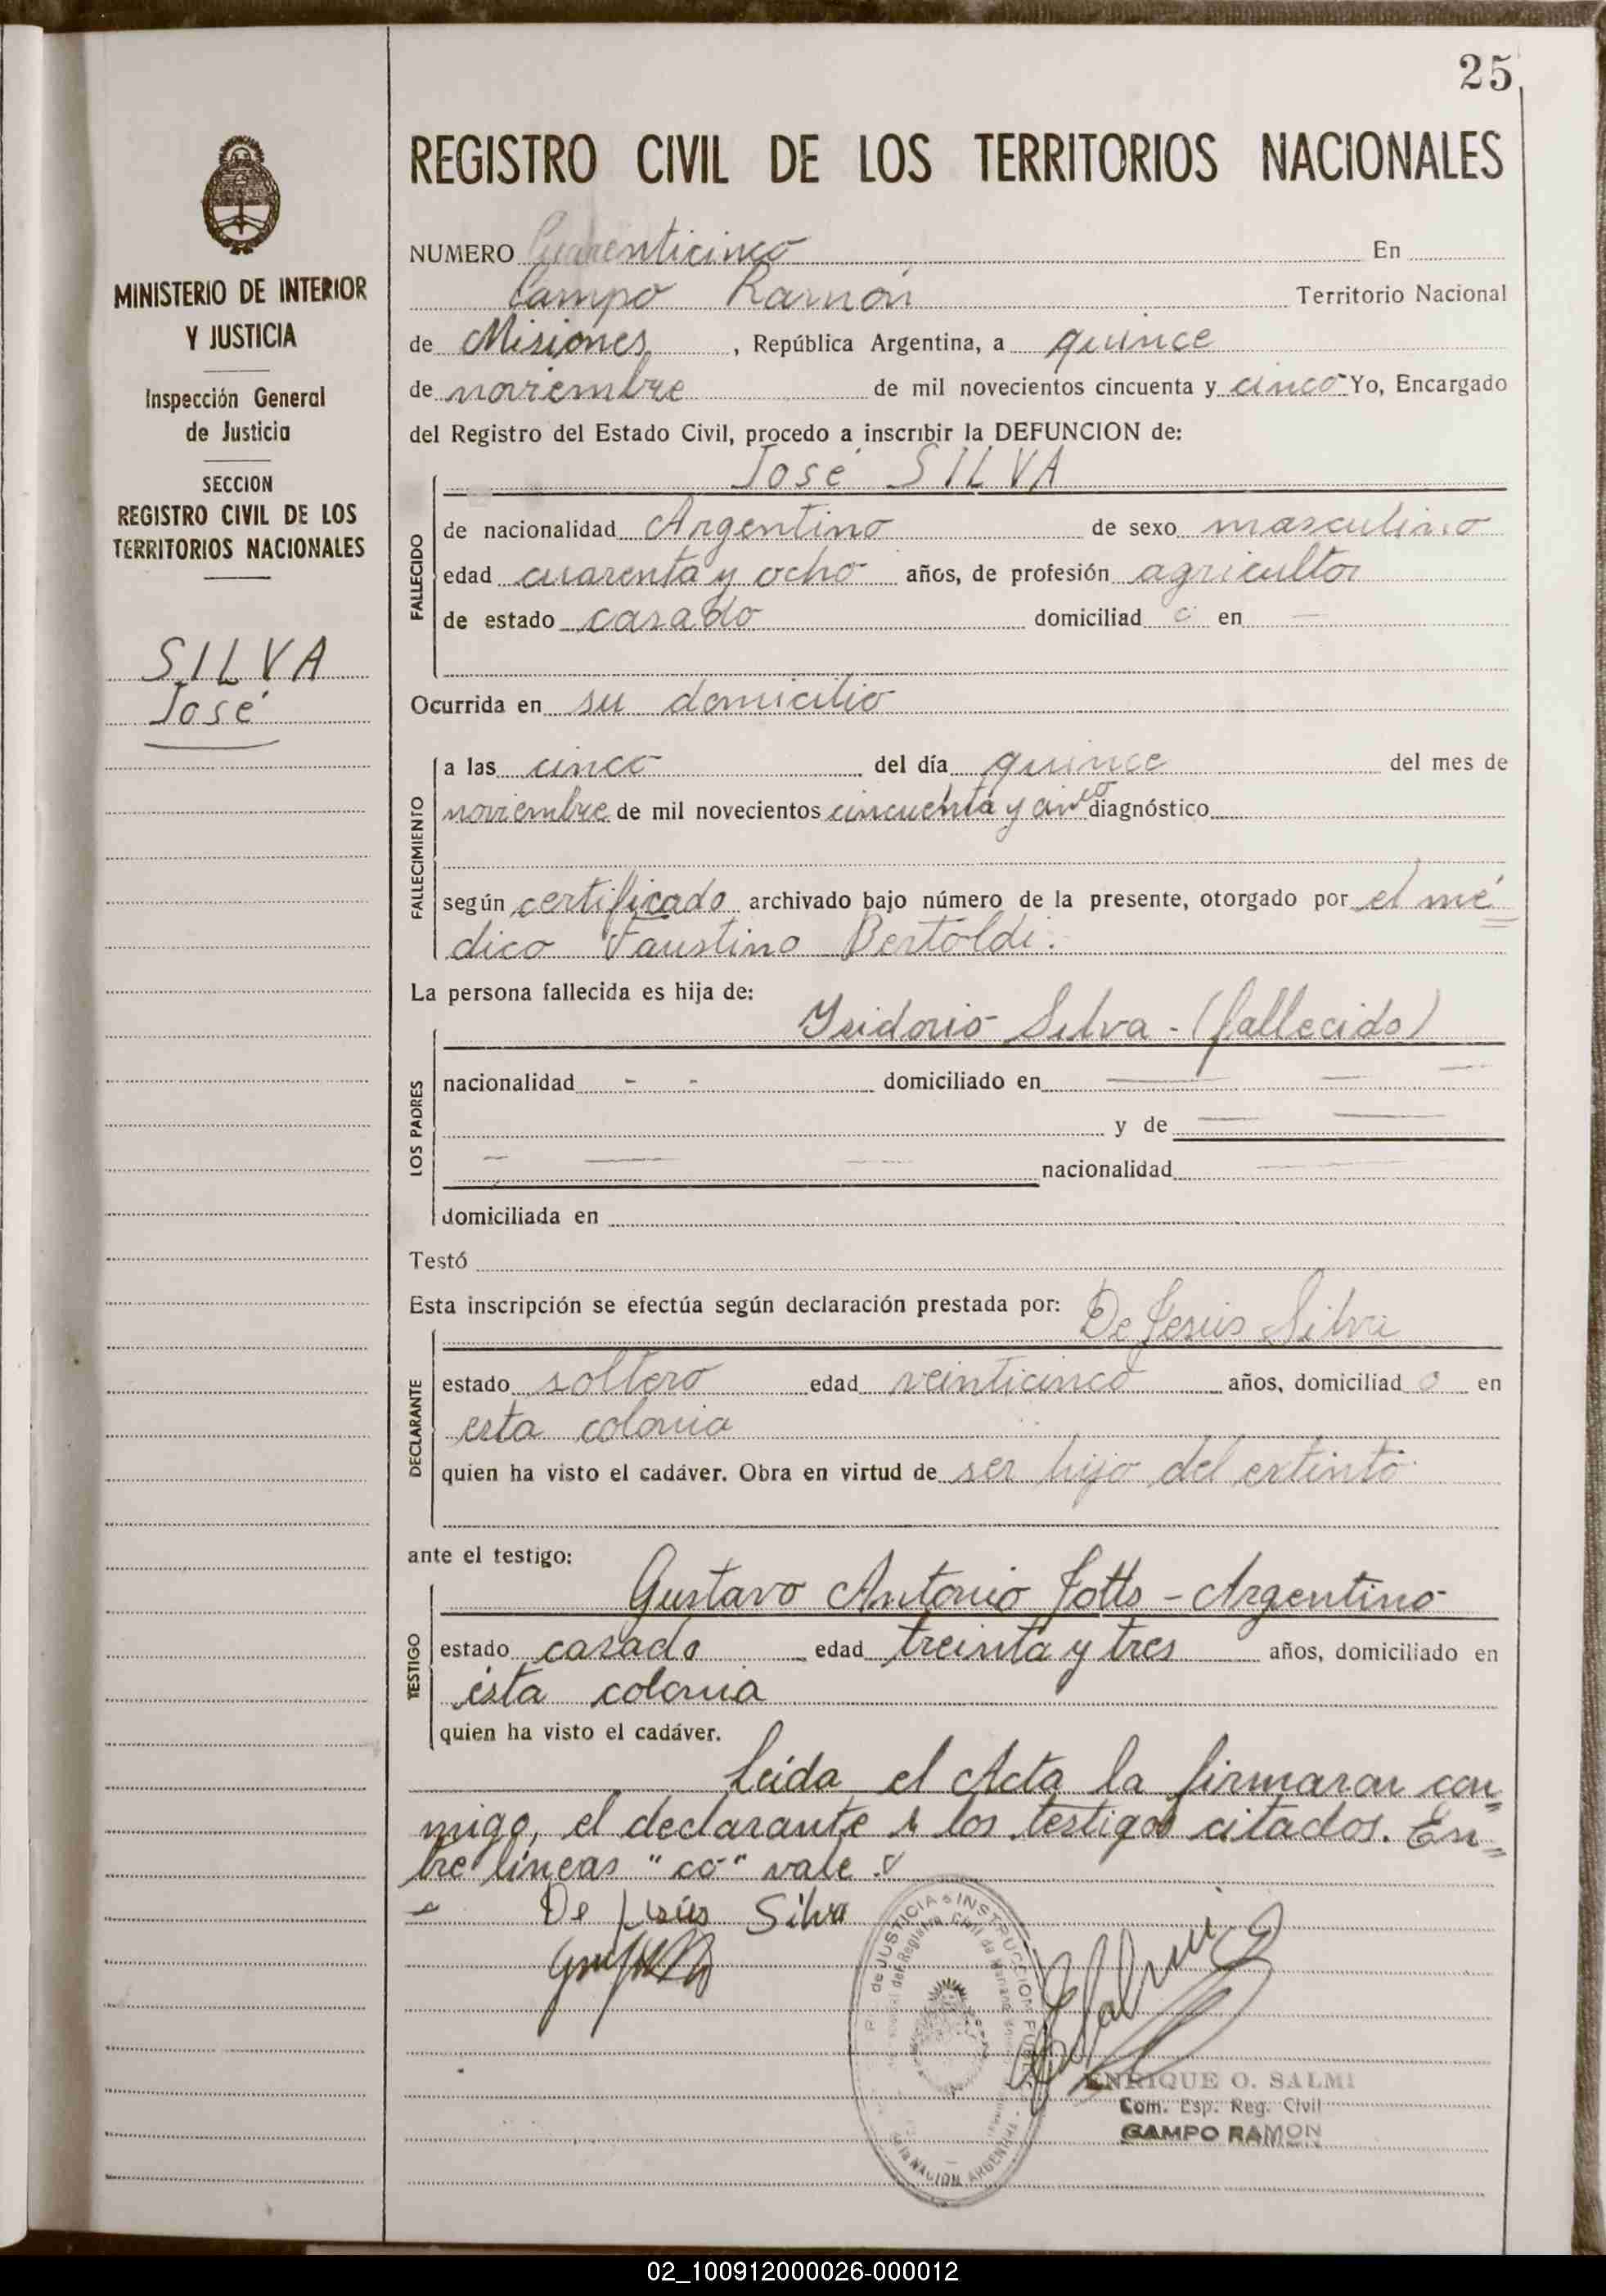 25
REGISTRO CIVIL DE LOS TERRITORIOS NACIONALES
MINISTERIO DE INTERIOR
Y JUSTICIA
Inspección General
de Justicia
SECCION
REGISTRO CIVIL DE LOS
TERRITORIOS NACIONALES
SILVA
José
NUMERO Cuarenticinco En
Campo Ramón Territorio Nacional
de Misiones, República Argentina, a quince
de noviembre de mil novecientos cincuenta y cinco Yo, Encargado
del Registro del Estado Civil, procedo a inscribir la DEFUNCION de:
José SILVA
FALLECIDO
de nacionalidad Argentino de sexo masculino
edad cuarenta y ocho años, de profesión agricultor
de estado casado domiciliad o en —
Ocurrida en su domicilio
FALLECIMIENTO
a las cinco del día quince del mes de
noviembre de mil novecientos cincuenta y cinco diagnóstico
según certificado archivado bajo número de la presente, otorgado por el mé
dico Faustino Bertoldi.
La persona fallecida es hija de:
Ysidorio Silva - (fallecido)
LOS PADRES
nacionalidad - - domiciliado en — — —
y de — —
— — — nacionalidad —
domiciliada en
Testó
Esta inscripción se efectúa según declaración prestada por: De Jesús Silva
DECLARANTE
estado soltero edad veinticinco años, domiciliad o en
esta colonia
quien ha visto el cadáver. Obra en virtud de ser hijo del extinto
ante el testigo:
Gustavo Antonio - Argentino
TESTIGO
estado casado edad treinta y tres años, domiciliado en
ésta colonia
quien ha visto el cadáver.
Leída el Acta la firmaron con
migo, el declarante y los testigos citados. En
tre líneas "co" vale.
De Jesús Silva
de JUSTICIA e INSTRUCCION
de la NACION ARGENTINA
ENRIQUE O. SALMI
Com. Esp. Reg. Civil
CAMPO RAMON
02_100912000026-000012